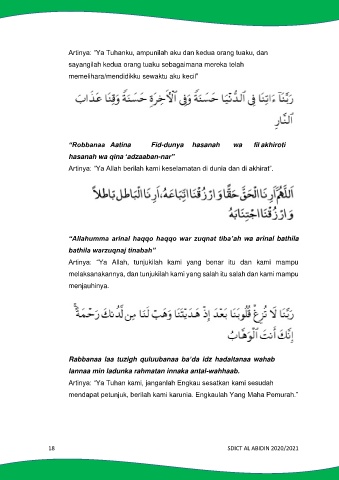 Artinya: "Ya Tuhanku, ampunilah aku dan kedua orang tuaku, dan
sayangilah kedua orang tuaku sebagaimana mereka telah
memelihara/mendidikku sewaktu aku kecil"
رَبَّنَآ ءَاتِنَا فِى ٱلدُّنْيَا حَسَنَةً وَفِى ٱلْأَخِرَةِ حَسَنَةً وَقِنَا عَذَابَ
ٱلنَّارِ
"Robbanaa Aatina Fid-dunya hasanah wa fil akhiroti
hasanah wa qina 'adzaaban-nar"
Artinya: "Ya Allah berilah kami keselamatan di dunia dan di akhirat".
اَللّٰهُمَّ اَرِنَا الْحَقَّ حَقًّا وَارْزُقْنَا اتِّبَاعَهُ، اَرِنَا الْبَاطِلَ بَاطِلاً
وَارْزُقْنَا اجْتِنَابَهُ
"Allahumma arinal haqqo haqqo war zuqnat tiba'ah wa arinal bathila
bathila warzuqnaj tinabah"
Artinya: "Ya Allah, tunjukilah kami yang benar itu dan kami mampu
melaksanakannya, dan tunjukilah kami yang salah itu salah dan kami mampu
menjauhinya.
رَبَّنَا لَا تُزِغْ قُلُوبَنَا بَعْدَ إِذْ هَدَيْتَنَا وَهَبْ لَنَا مِن لَّدُنكَ رَحْمَةً ۚ
إِنَّكَ أَنتَ ٱلْوَهَّابُ
Rabbanaa laa tuzigh quluubanaa ba'da idz hadaitanaa wahab
lannaa min ladunka rahmatan innaka antal-wahhaab.
Artinya: "Ya Tuhan kami, janganlah Engkau sesatkan kami sesudah
mendapat petunjuk, berilah kami karunia. Engkaulah Yang Maha Pemurah."
18 SDICT AL ABIDIN 2020/2021